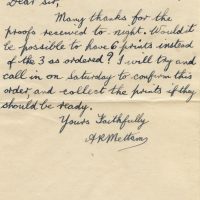 Dear Sir,
Many thanks for the
proofs received to-night. Would it
be possible to have 6 prints instead
of the 3 as ordered? I will try and
call in on Saturday to confirm this
order, and collect the prints if they
should be ready.
Yours Faithfully